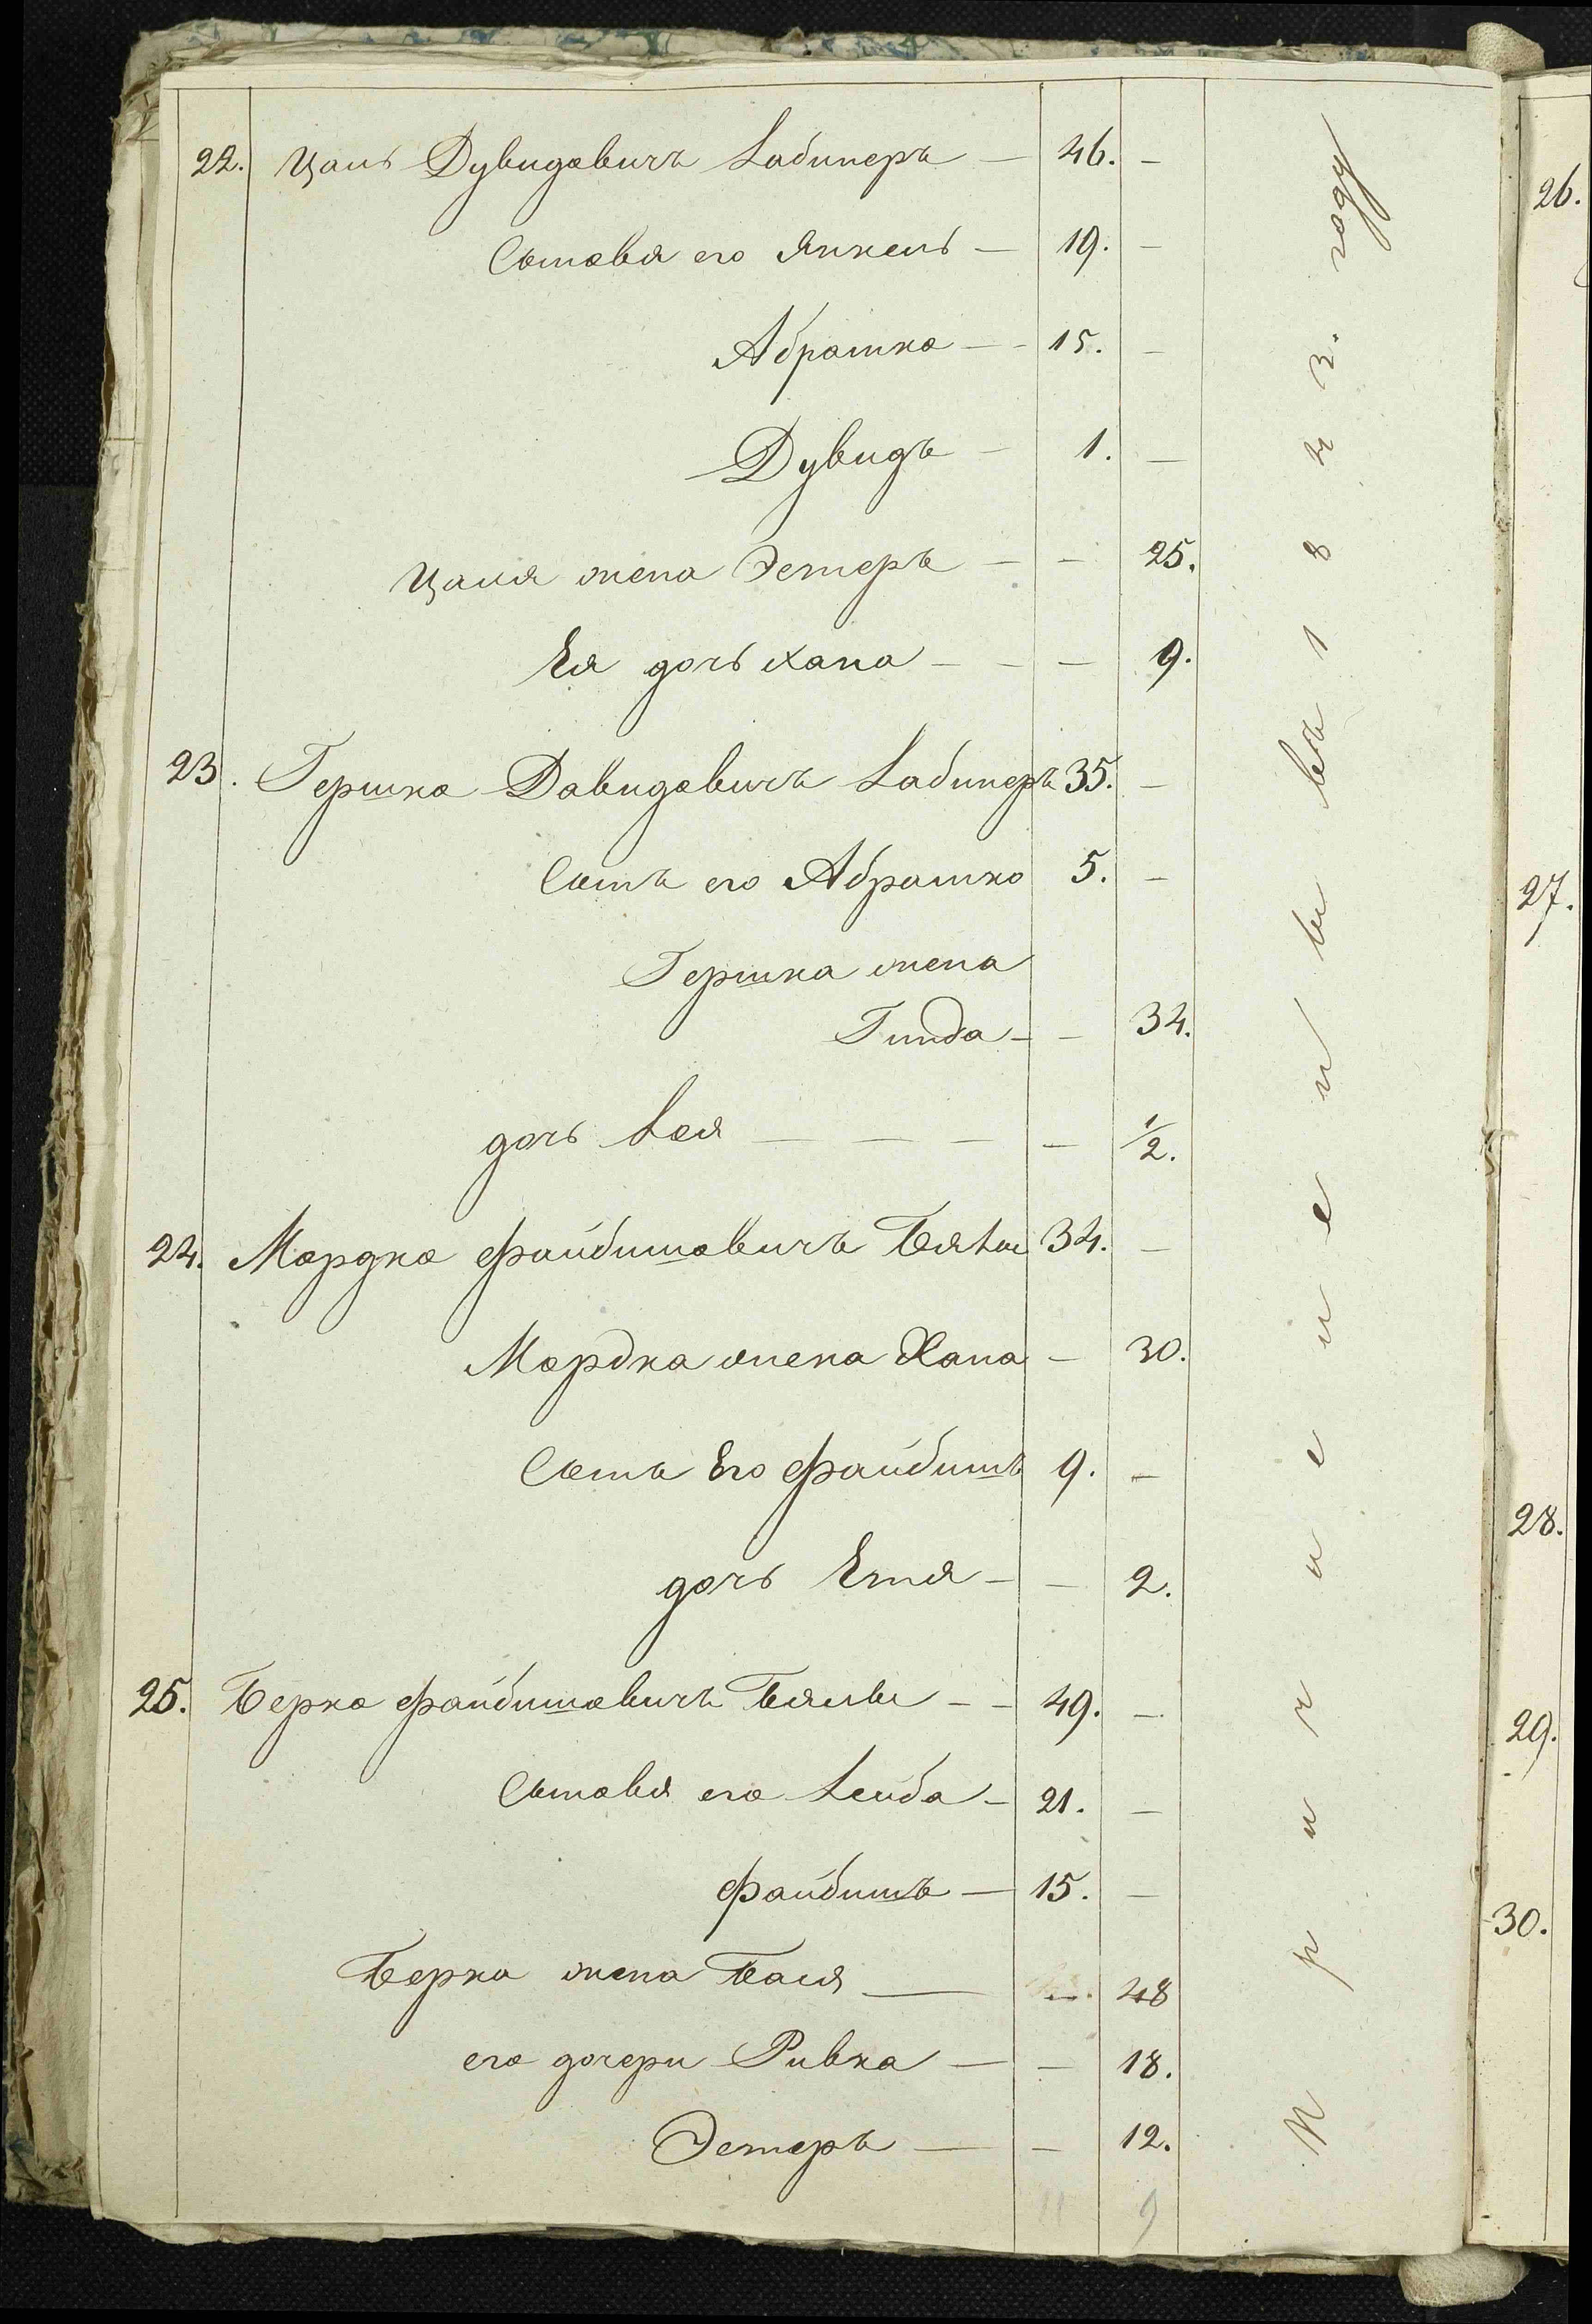 22. Цаль Дувидовичъ Лабинеръ — 46. —
Сыновья его Янкель — 19. —
Абрашко — - 15. —
Дувидъ — 1. —
Цаля жена Эстеръ — — 25.
Ея дочь Хана — — — 9.
23. Гершко Давидовичъ Лабинеръ 35. —
Сынъ его Абрашко 5. —
Гершка жена
Гинда — — 34.
дочь Лея — — — — 1/2.
24. Мордко Файбишовичъ Бялы 34. —
Мордка жена Хана — 30.
Сынъ Его Файбишъ 9. —
дочь Етя — — 2.
25. Берко Файбишовичъ Бялы — — 49. —
Сыновья его Лейба — 21. —
Файбишъ — 15. —
Берка жена Бася — — 48
его дочери Ривка — — 18.
Эстеръ — — 12.
11 9
Причислены въ 1843. году
26.
27.
28.
29.
30.